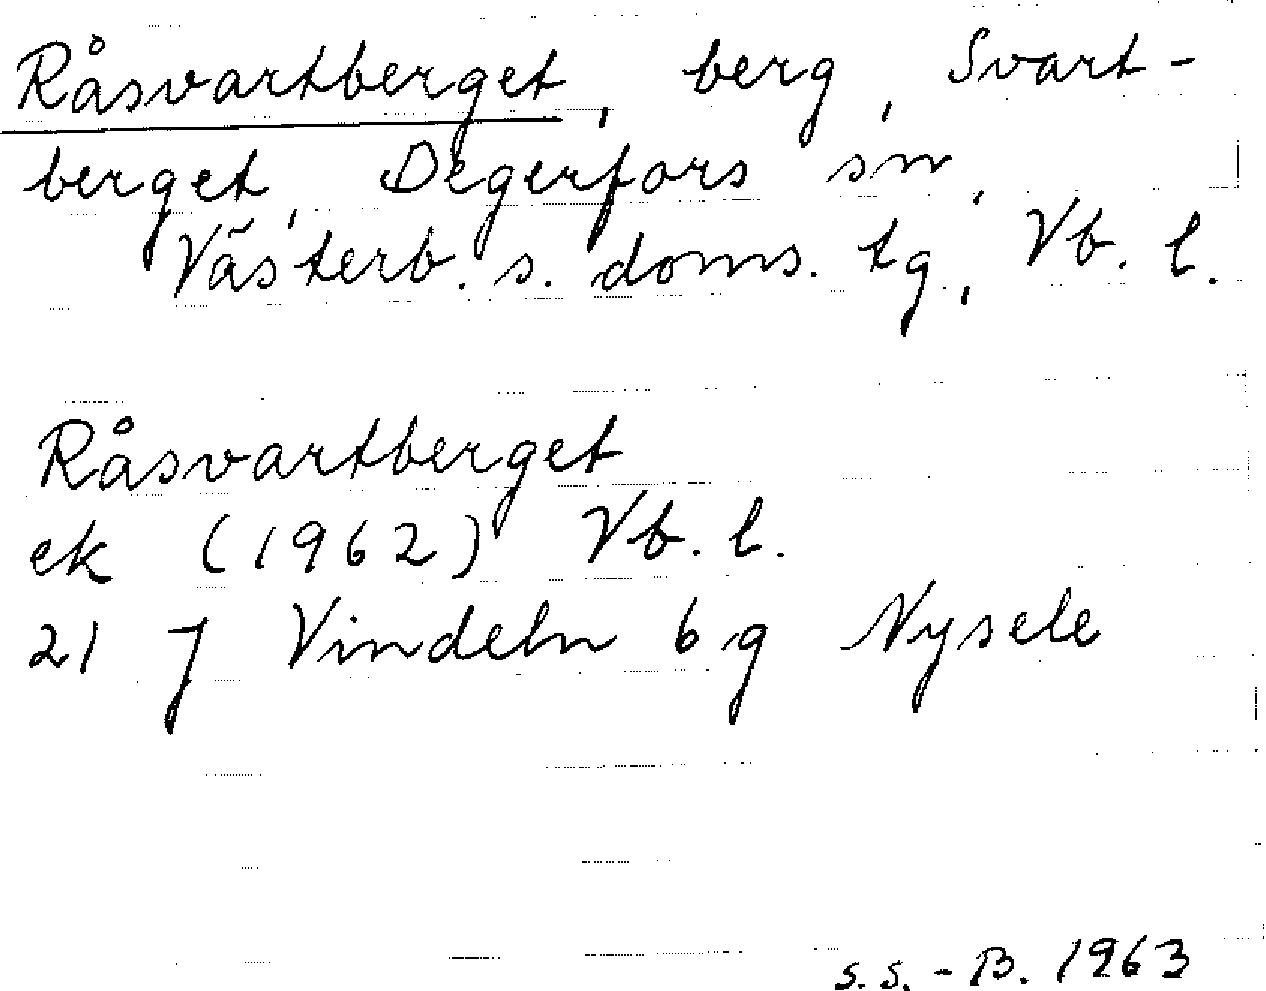 Råsvartberget, berg, Svart-
berget, Degerfors sn,
Västerb. s. doms. tg, Vb. l.
Råsvartberget
ek (1962) Vb. l.
21 J Vindeln 6 g Nysele
S.S.-B. 1963